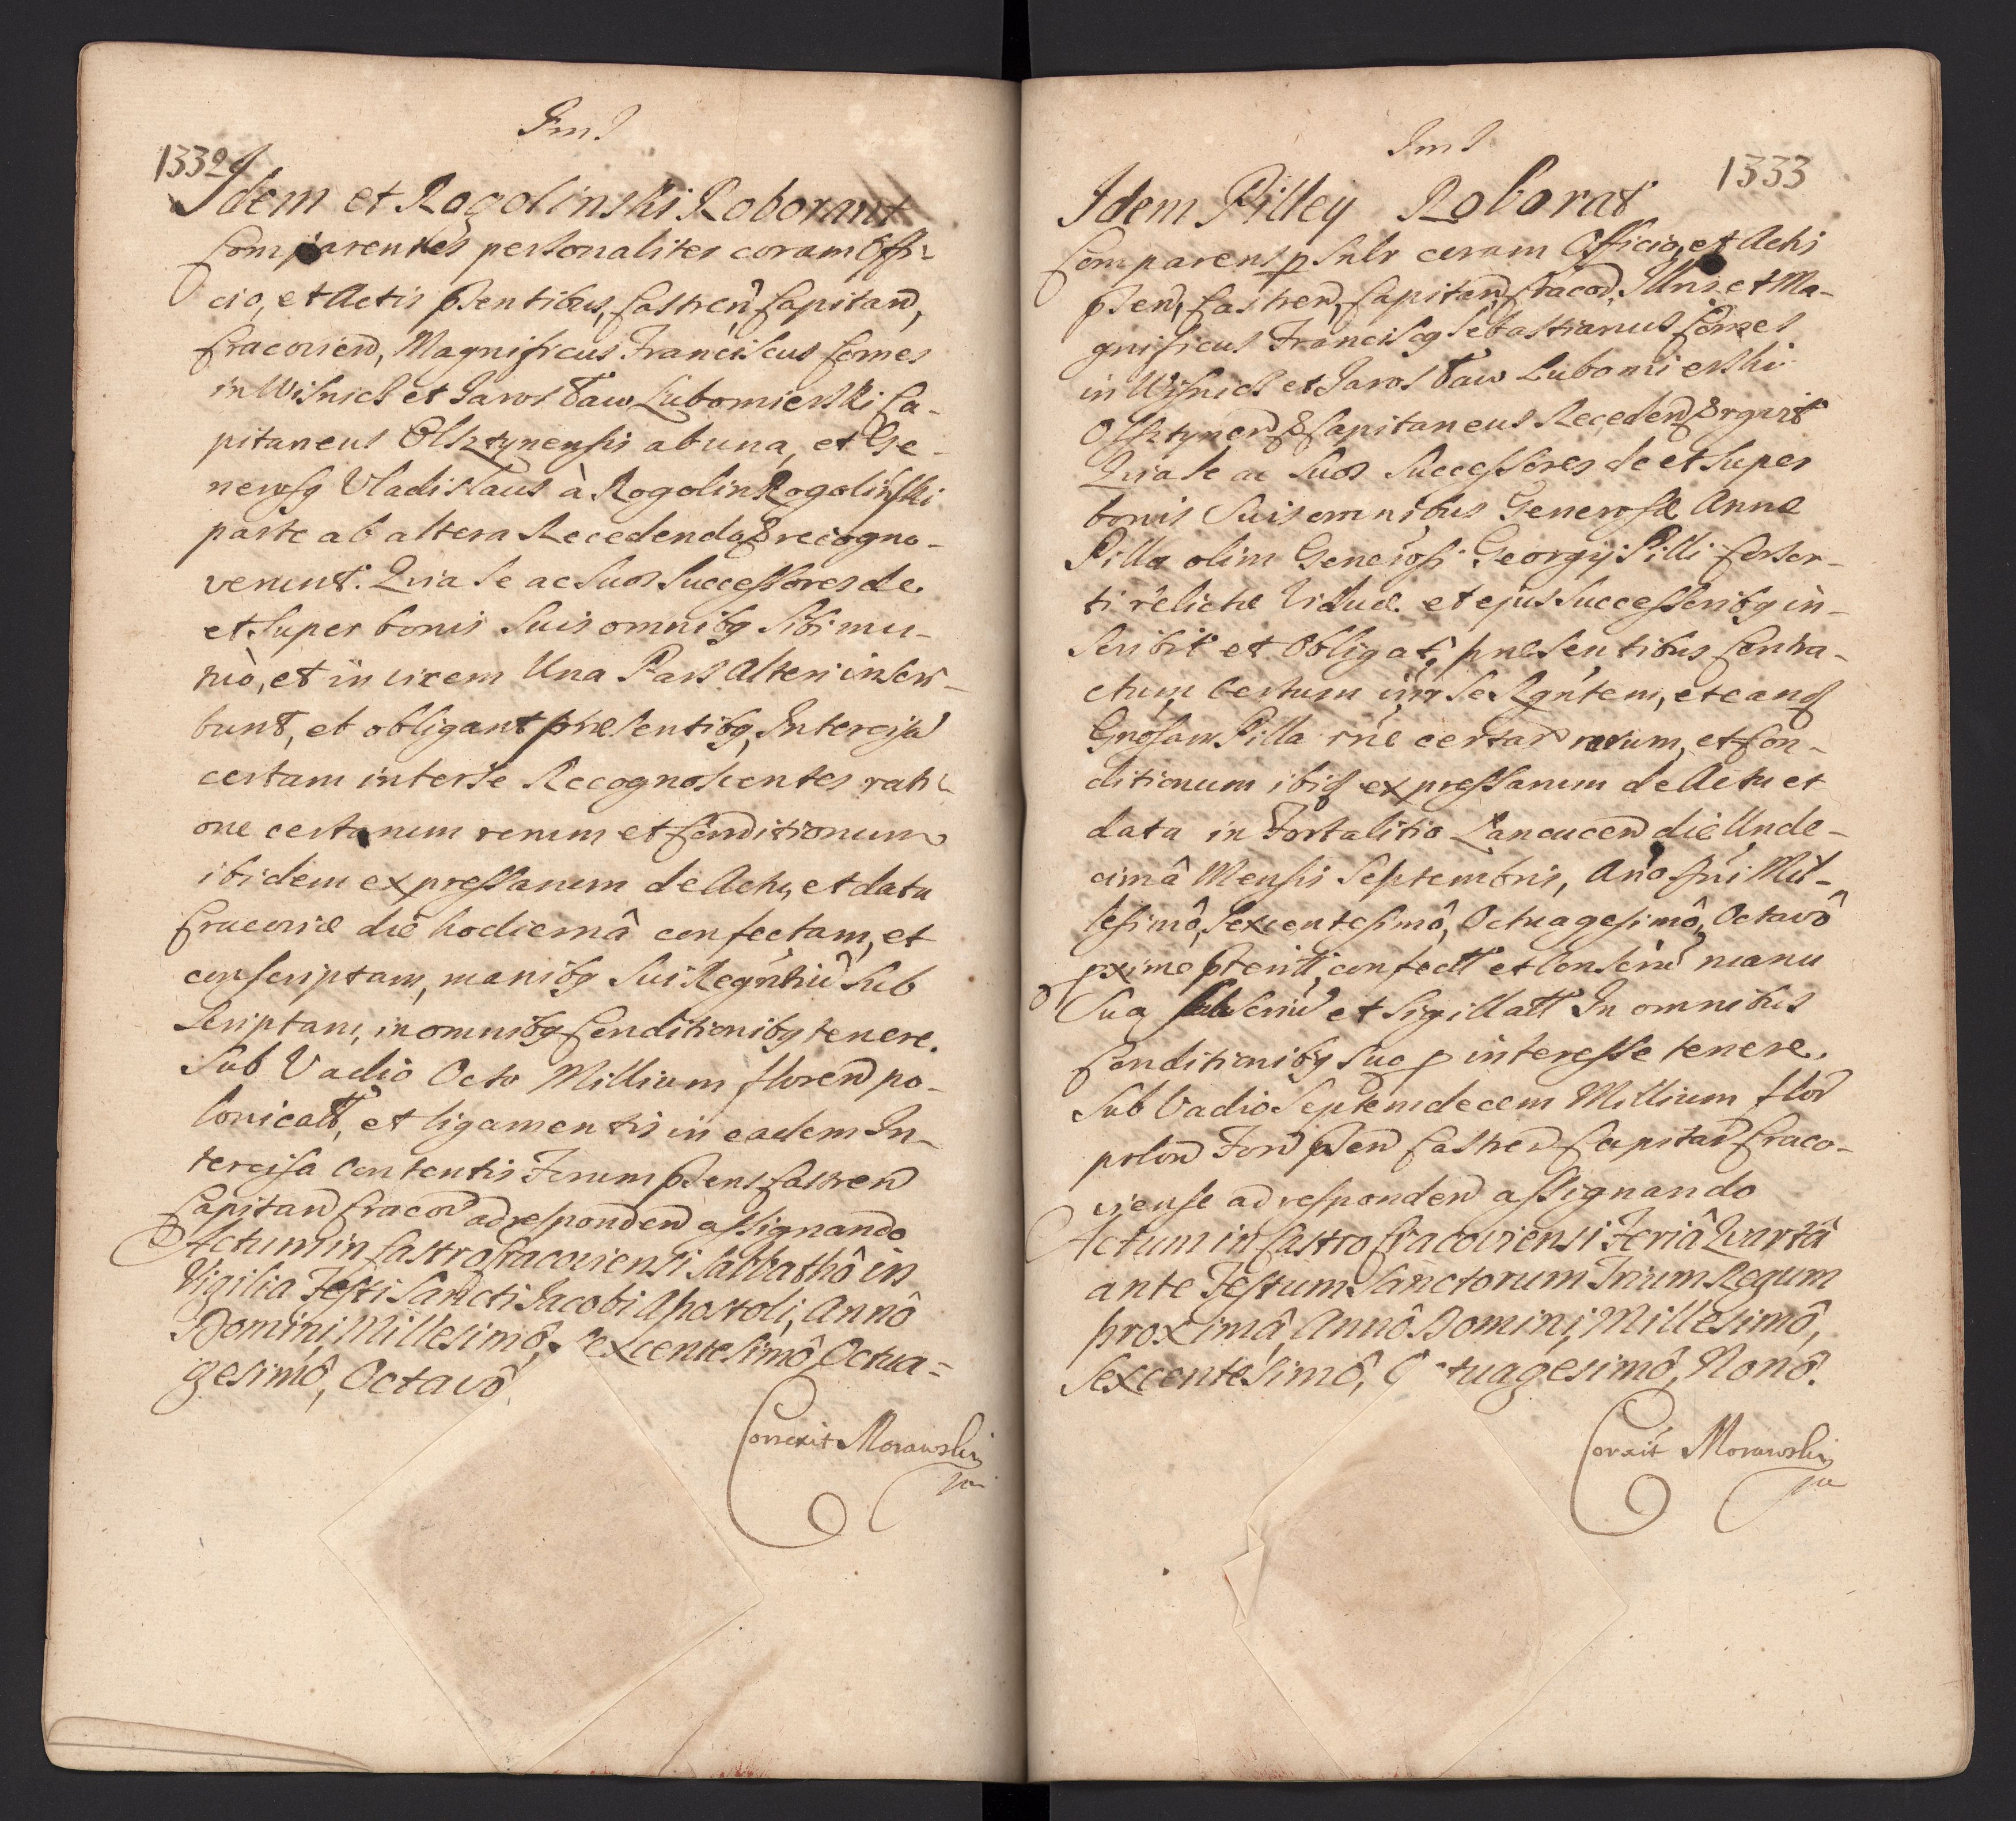 Im I
1332
Idem et Rogolinski Roborant
Comparentes personaliter coram Offi-
cio, et Actis psentibus, Castren Capitan,
Cracovien, Magnificus Franciscus Comes
in Wisnicz et Jarosław Lubomierski Ca-
pitaneus Olsztynensis ab una, et Ge-
nerosq Vladislaus à Rogolin Rogolinski
parte ab altera Recedendo & recogno-
verunt. Quia se ac Suos Successores de
et Super bonis Suis omnibq Sibi mu-
tuò, et in vicem Una Pars Alteri inscri-
bunt, et obligant præsentibq, Intercisā
certam inter se Recognoscentes rati-
one certarum rerum et Conditionum
ibidem expressarum de Actu, et data
Cracoviæ die hodiernâ confectam, et
conscriptam, manibq Sui Regntiū Sub
Scriptam, in omnibq Conditionibq tenere.
Sub Vadio Octo Millium floren po-
lonicalt, et ligamentis in eadem In-
tercisa Contentis Forum psens Castren
Capitan Cracov ad responden assignando
Actum in Castro Cracoviensi Sabbathô in
Vigilia Festi Sancti Jacobi Apostoli, Annô
Domini, Millesimô, Sexcentesimô Octua-
gesimô, Octavô
Correxit Morawski
Im I
1333
Idem Pilley Roborat
Comparens p snlr coram Officio, et Actis
psen, Castren, Capitan, Cracov, Illris et Ma-
gnificus Franciscq Sebastianus Comes
in Wisnicz et Jarosław Lubomierski
Olsztynen & Capitaneus Receden & rgnvit
Quia se ac Suos Successores de et Super
bonis Suis omnibus Generosæ Annæ
Pilla olim Generosi Georgij Pilli Consor-
ti relictæ Viduæ et ejus Successoribq in-
scribit et Obligat, præsentibus Contra-
ctum, Certum intr Se Rgntem, et eandq
Gnosam Pilla rne certar rerum, et Con-
ditionum ibiq expressarum de Actu et
data in Fortalitio Lancucen die Unde-
cimâ Mensis Septembris, Ano Dni Mil-
lesimô, Sexcentesimô, Octuagesimô, Octavô
pxime pteriti, confectt et Conscriū manu
Sua Subscriū et Sigillatt In omnibus
Conditionibq Suo p interesse tenere.
Sub Vadio Septemdecem Millium flor
polon Forū psen Castren Capitan Craco-
viense ad responden assignando
Actum in Castro Cracoviensi Feriâ Quartâ
ante Festum Sanctorum Trium Regum
proximâ, Annô Domini, Millesimô,
Sexcentesimô, Octuagesimô, Nonô.
Corxit Morawski